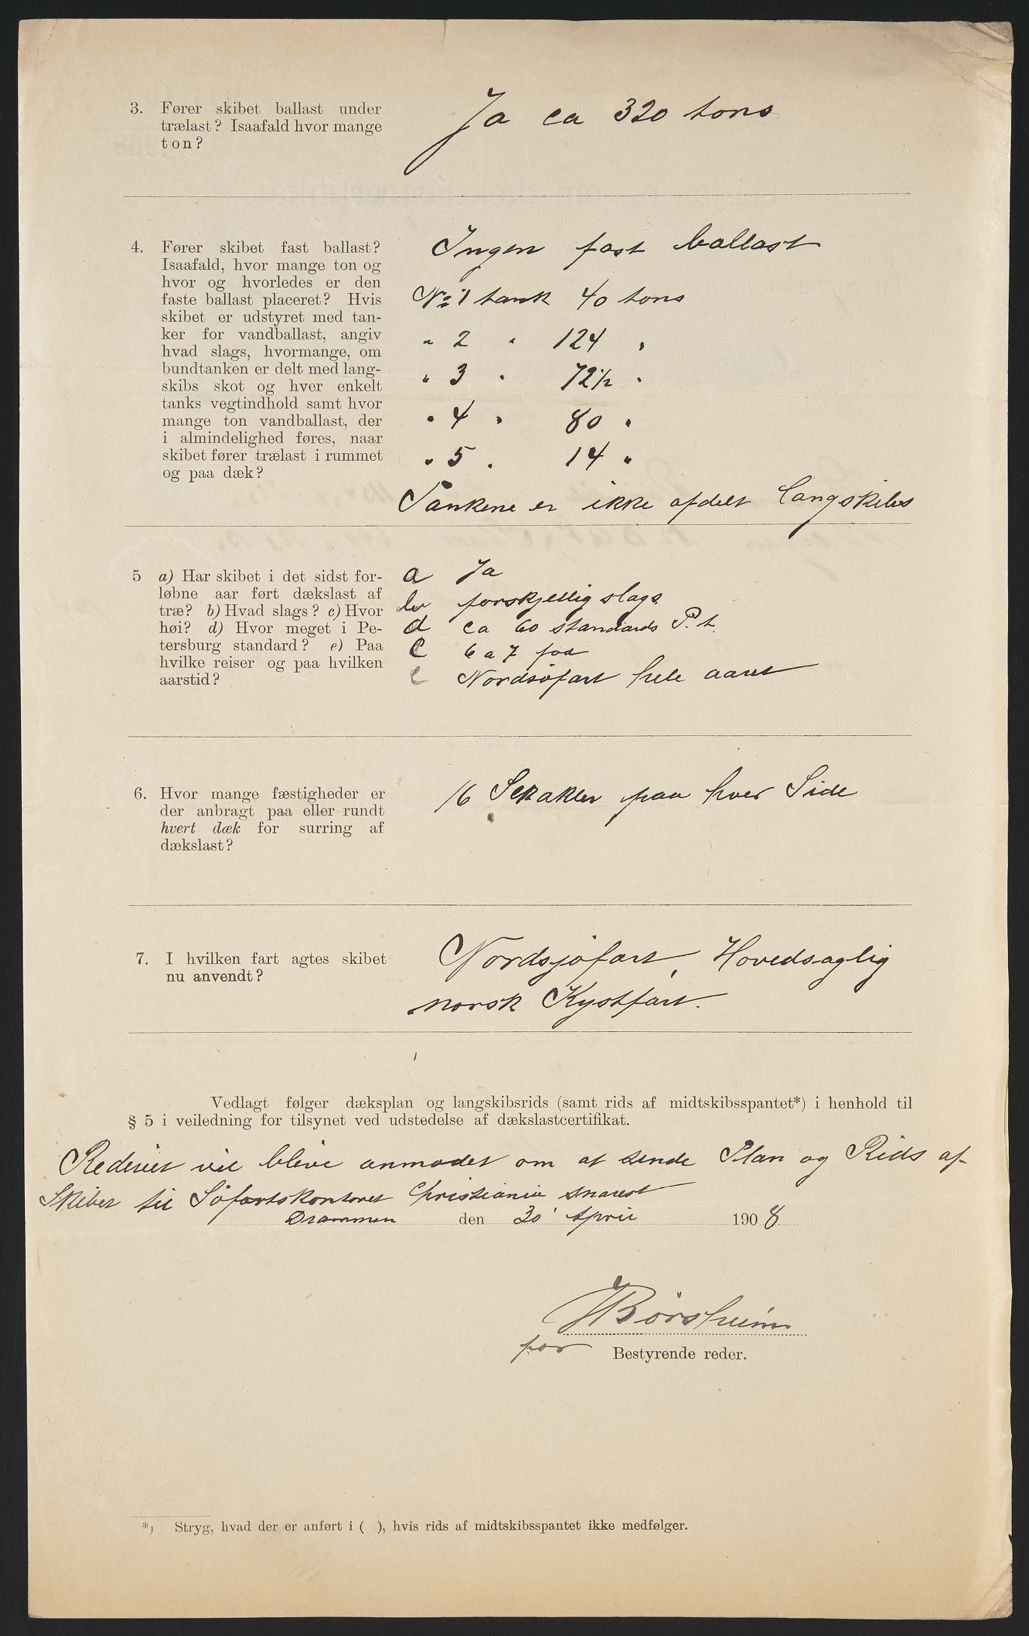 3. Fører skibet ballast under
trælast? Isaafald hvor mange
ton?
Ja ca 320 tons
4. Fører skibet fast ballast?
Isaafald, hvor mange ton og
hvor og hvorledes er den
faste ballast placeret? Hvis
skibet er udstyret med tan-
ker for vandballast, angiv
hvad slags, hvormange, om
bundtanken er delt med lang-
skibs skot og hver enkelt
tanks vegtindhold samt hvor
mange ton vandballast, der
i almindelighed føres, naar
skibet fører trælast i rummet
og paa dæk?
Ingen fast ballast
No 1 tank 40 tons
" 2 " 124 "
" 3 " 72 1/2 "
" 4 " 80 "
" 5 " 14 "
Tankene er ikke afdelt langskibs
5 a) Har skibet i det sidst for-
løbne aar ført dækslast af
træ? b) Hvad slags? c) Hvor
høi? d) Hvor meget i Pe-
tersburg standard? e) Paa
hvilke reiser og paa hvilken
aarstid?
a Ja
b forskjellig slags
d ca 60 standards P. st.
c 6 a 7 fod
e Nordsøfart hele aaret
6. Hvor mange fæstigheder er
der anbragt paa eller rundt
hvert dæk for surring af
dækslast?
16 Schakler paa hver Side
7. I hvilken fart agtes skibet
nu anvendt?
Nordsjøfart, Hovedsaglig
norsk Kystfart.
Vedlagt følger dæksplan og langskibsrids (samt rids af midtskibsspantet*) i henhold til
§ 5 i veiledning for tilsynet ved udstedelse af dækslastcertifikat.
Rederiet vil blive anmodet om at sende Plan og Rids af
Skibet til Søfartskontoret Christiania snarest
Drammen den 30' April 1908
Børsheim
for Bestyrende reder.
*) Stryg, hvad der er anført i ( ), hvis rids af midtskibsspantet ikke medfølger.